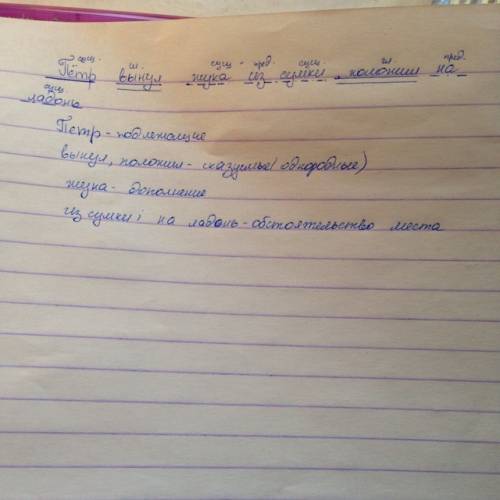 сущ. гл. сущ. пред. сущ. гл. пред.
Пётр вынул жука из сумки, положил на
сущ.
ладонь
Петр - подлежащие
вынул, положил - сказуемые (однородные)
жука - дополнение
из сумки; на ладонь - обстоятельство места